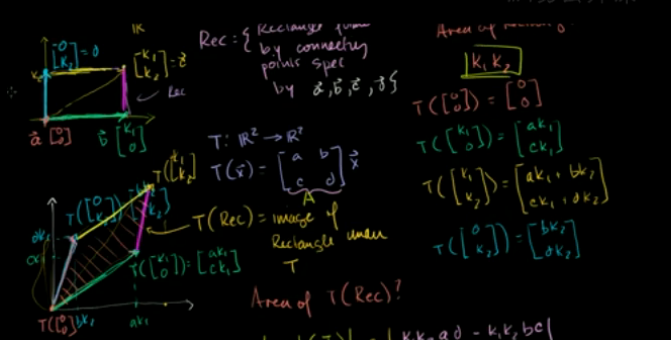 [0 k₂] = d
[k₁ k₂] = c
k₂
Rec
a [0 0]
b [k₁ 0]
Rec = { Rectangle
by connecting
points spec
by a, b, c, d }
Area of
k₁ k₂
T([0 0]) = [0 0]
T([k₁ 0]) = [ak₁ ck₁]
T([k₁ k₂]) = [ak₁ + bk₂ ck₁ + dk₂]
T([0 k₂]) = [bk₂ dk₂]
T: ℝ² → ℝ²
T(x) = [a b c d] x
A
T(Rec) = image of
Rectangle under
T
T([k₁ k₂])
T([0 k₂])
dk₂
ck₁
T([k₁ 0]) = [ak₁ ck₁]
T([0 0])
bk₂
ak₁
Area of T(Rec)?
k₁k₂ad - k₁k₂bc|